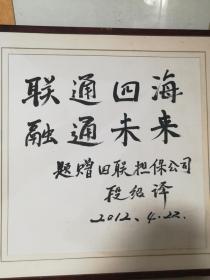 联通四海
融通未来
题赠四联担保公司
段绍译
2012.4.22.